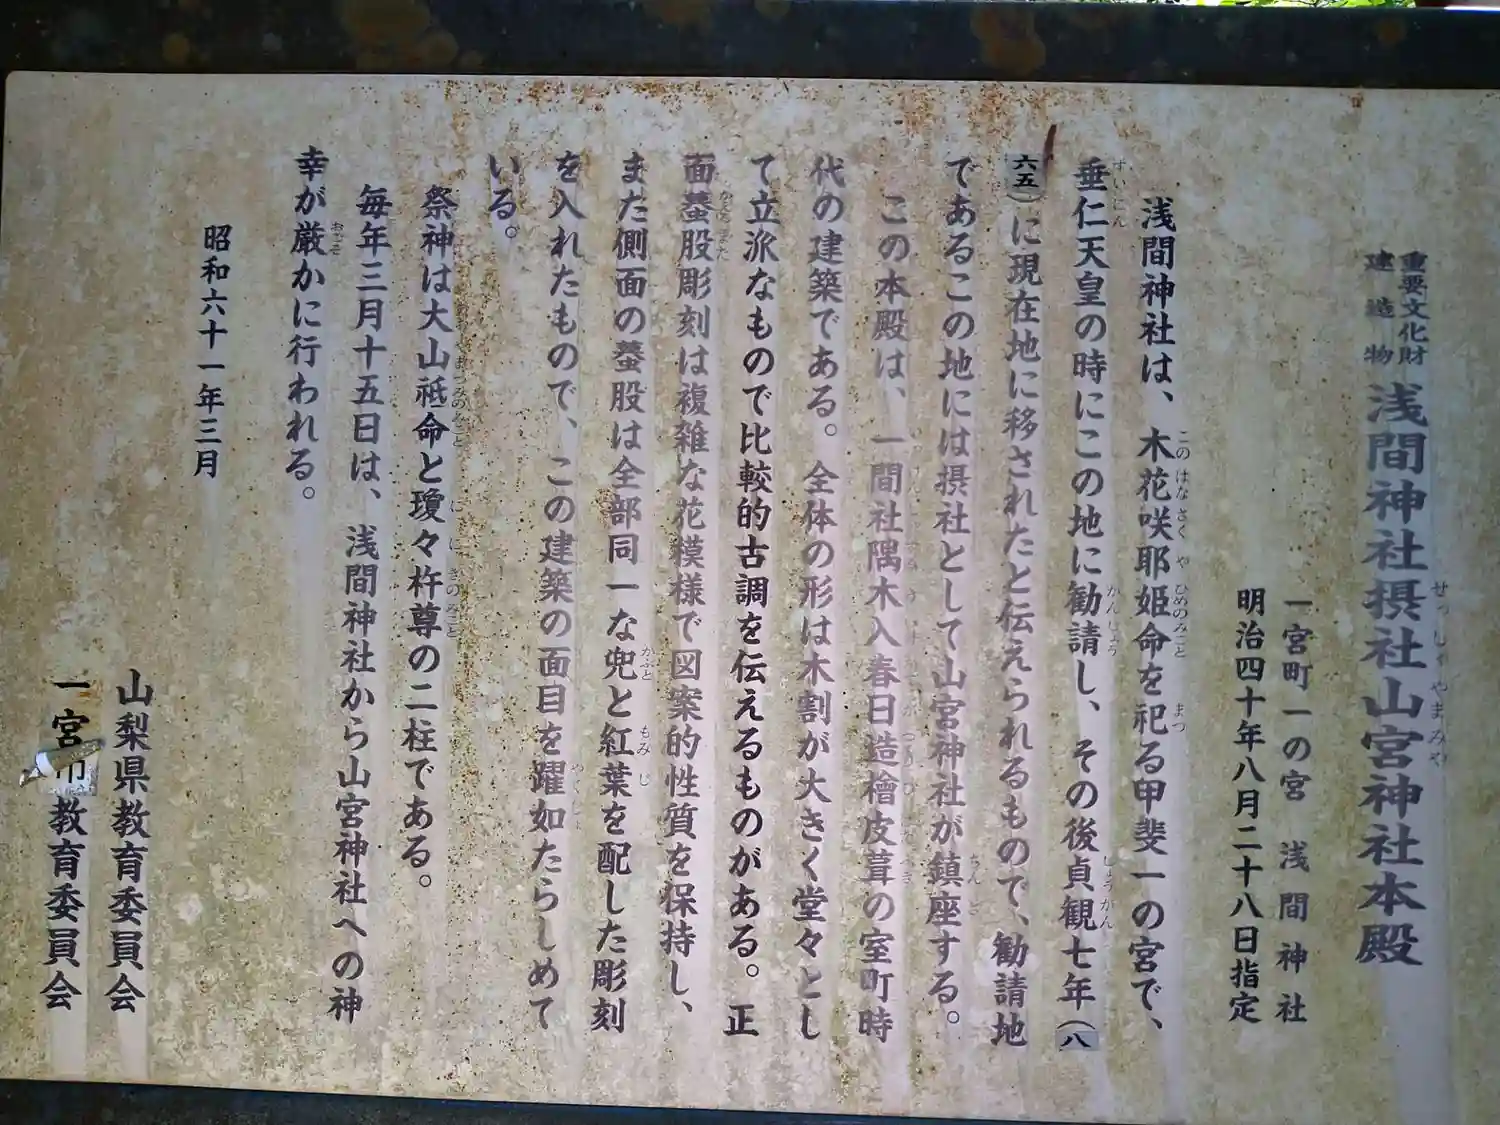 重要文化財
建造物
浅間神社摂社山宮神社本殿
一宮町一の宮 浅間神社
明治四十年八月二十八日指定
浅間神社は、木花咲耶姫命を祀る甲斐一の宮で、
垂仁天皇の時にこの地に勧請し、その後貞観七年(八
六五)に現在地に移されたと伝えられるもので、勧請地
であるこの地には摂社として山宮神社が鎮座する。
この本殿は、一間社隅木入春日造檜皮葺の室町時
代の建築である。全体の形は木割が大きく堂々とし
て立派なもので比較的古調を伝えるものがある。正
面蟇股彫刻は複雑な花模様で図案的性質を保持し、
また側面の蟇股は全部同一な兜と紅葉を配した彫刻
を入れたもので、この建築の面目を躍如たらしめて
いる。
祭神は大山祇命と瓊々杵尊の二柱である。
毎年三月十五日は、浅間神社から山宮神社への神
幸が厳かに行われる。
昭和六十一年三月
山梨県教育委員会
一宮 教育委員会